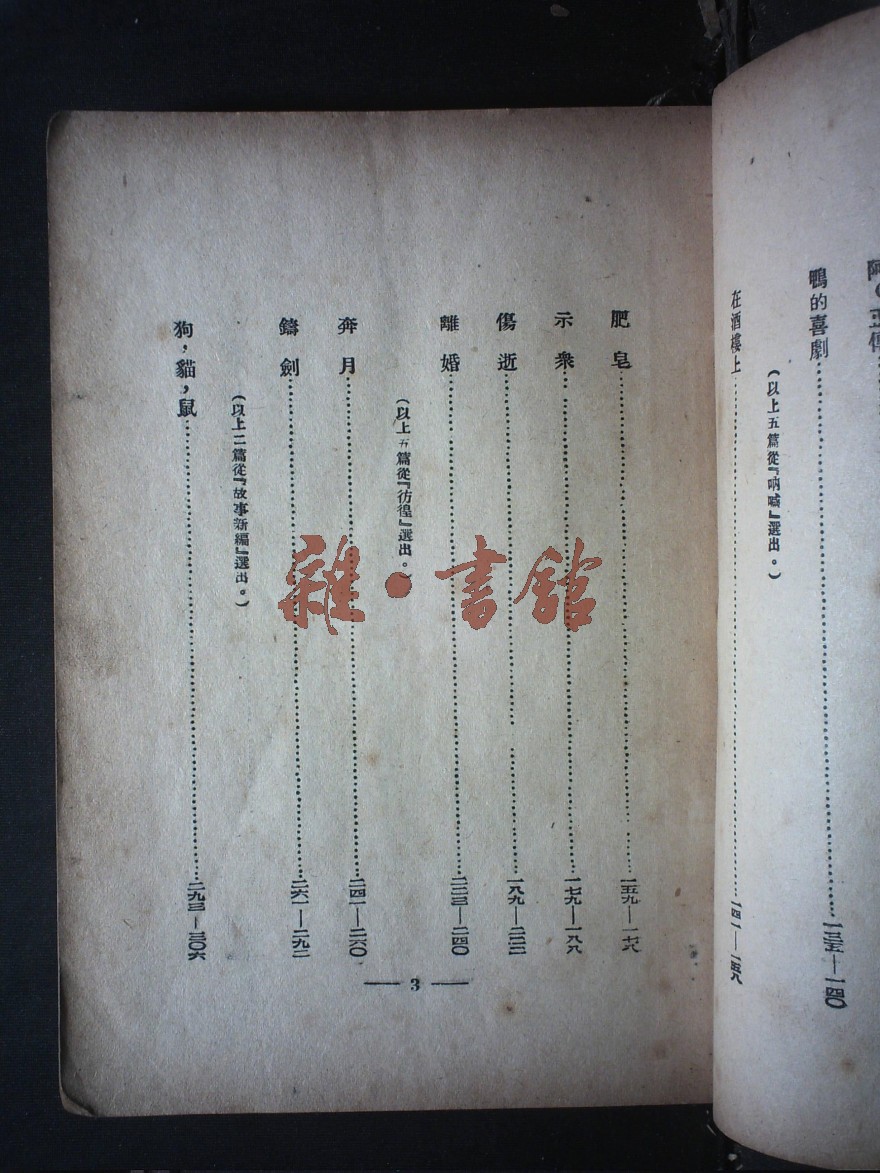 阿Q正傳……
鴨的喜劇……一三五—一四〇
(以上五篇從『吶喊』選出。)
在酒樓上……一四一—一五八
肥皂……一五九—一七八
示衆……一七九—一八八
傷逝……一八九—二二二
離婚……二二三—二四〇
(以上五篇從『彷徨』選出。)
奔月……二四一—二六〇
鑄劍……二六一—二九二
(以上二篇從『故事新編』選出。)
狗,貓,鼠……二九三—三〇六
— 3 —
雜·書館